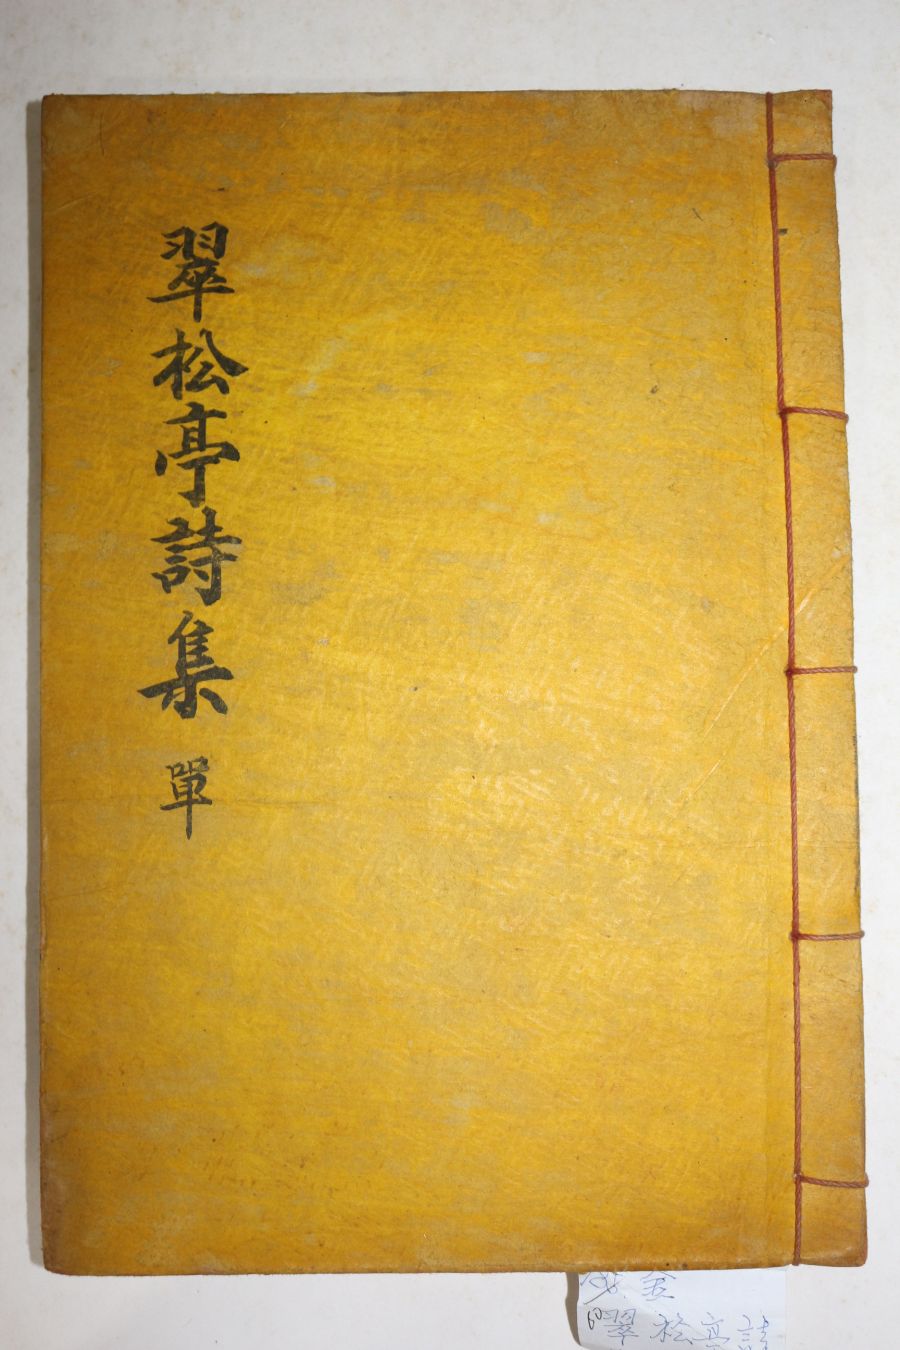 翠松亭詩集 單
翠松亭詩